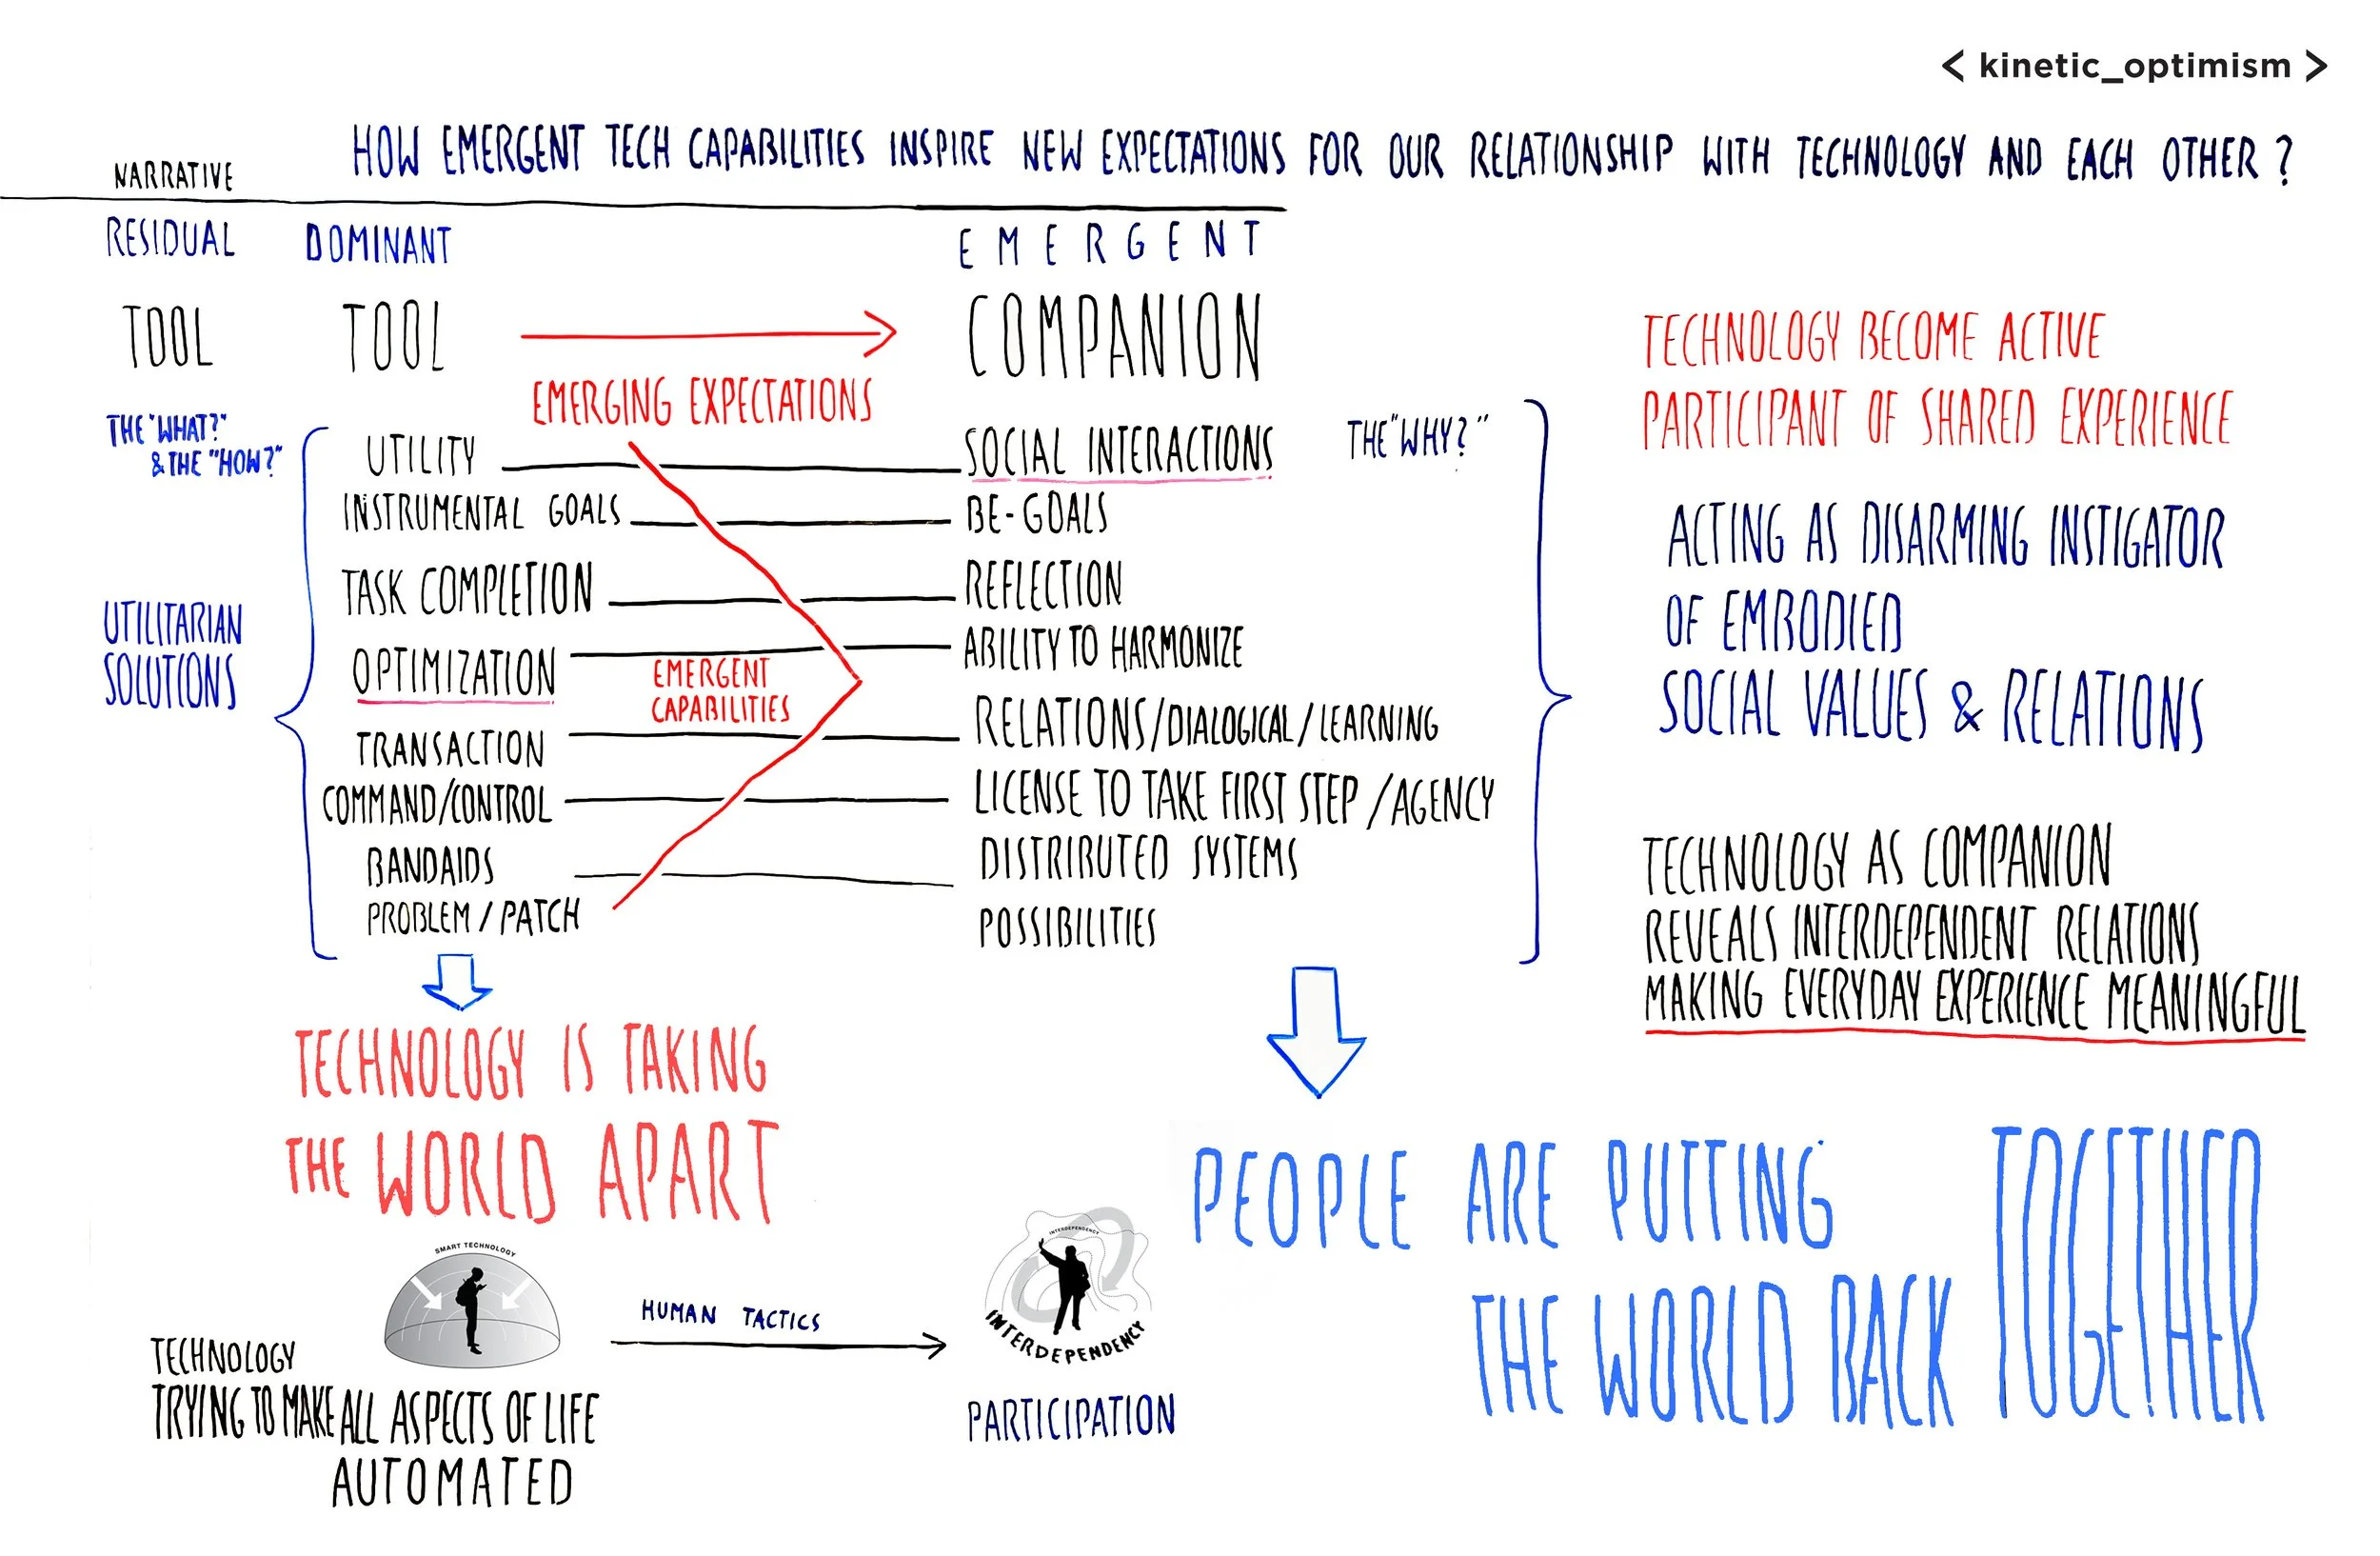 < kinetic_optimism >
HOW EMERGENT TECH CAPABILITIES INSPIRE NEW EXPECTATIONS FOR OUR RELATIONSHIP WITH TECHNOLOGY AND EACH OTHER?
NARRATIVE
RESIDUAL
DOMINANT
EMERGENT
TOOL
TOOL
COMPANION
EMERGING EXPECTATIONS
THE "WHAT?"
& THE "HOW?"
UTILITARIAN
SOLUTIONS
UTILITY
INSTRUMENTAL GOALS
TASK COMPLETION
OPTIMIZATION
TRANSACTION
COMMAND/CONTROL
BANDAIDS
PROBLEM / PATCH
EMERGENT
CAPABILITIES
SOCIAL INTERACTIONS
BE-GOALS
REFLECTION
ABILITY TO HARMONIZE
RELATIONS/DIALOGICAL/LEARNING
LICENSE TO TAKE FIRST STEP /AGENCY
DISTRIBUTED SYSTEMS
POSSIBILITIES
THE "WHY?"
TECHNOLOGY BECOME ACTIVE
PARTICIPANT OF SHARED EXPERIENCE
ACTING AS DISARMING INSTIGATOR
OF EMBODIED
SOCIAL VALUES & RELATIONS
TECHNOLOGY AS COMPANION
REVEALS INTERDEPENDENT RELATIONS
MAKING EVERYDAY EXPERIENCE MEANINGFUL
TECHNOLOGY IS TAKING
THE WORLD APART
PEOPLE ARE PUTTING
THE WORLD BACK
TOGETHER
SMART TECHNOLOGY
TECHNOLOGY
TRYING TO MAKE ALL ASPECTS OF LIFE
AUTOMATED
HUMAN TACTICS
INTERDEPENDENCY
INTERDEPENDENCY
PARTICIPATION